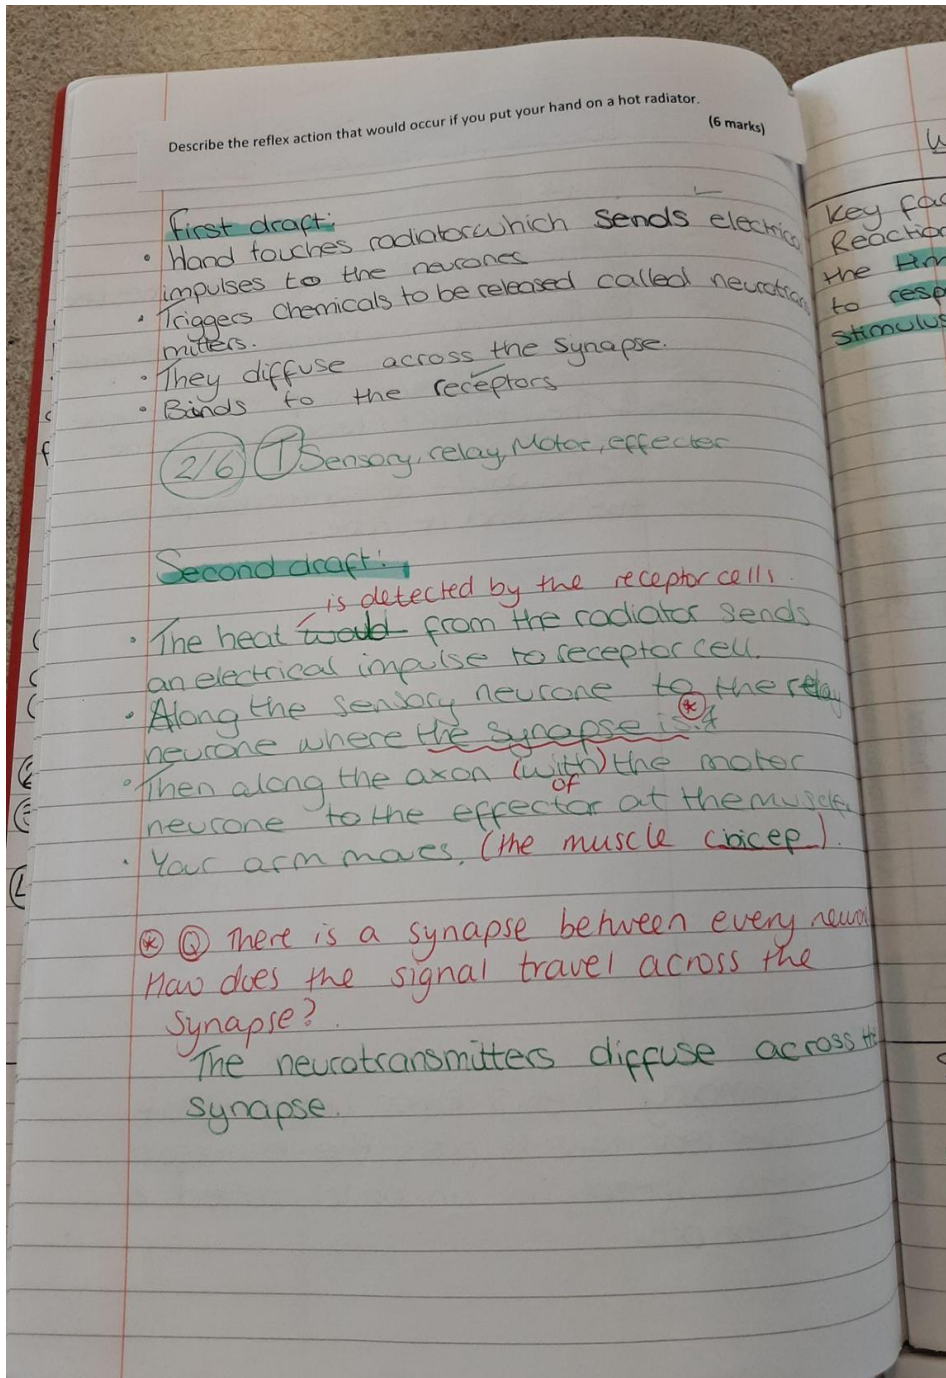 Describe the reflex action that would occur if you put your hand on a hot radiator.
(6 marks)
First draft:
• Hand touches radiator which sends electrica
impulses to the neurones
• Triggers chemicals to be released called neurotran
mitters.
• They diffuse across the synapse.
• Binds to the receptors
2/6 T Sensory, relay, Motor, effecter
Second draft:
is detected by the receptor cells.
• The heat would from the radiator sends
an electrical impulse to receptor cell.
• Along the sensory neurone to the relay
neurone where the synapse is.
• Then along the axon (with) the motor
of
neurone to the effector at the muscle.
• Your arm moves. (the muscle bicep).
* Q There is a synapse between every neuro
How does the signal travel across the
synapse?
The neurotransmitters diffuse across the
synapse.
Key fac
Reaction
the
to resp
stimulus